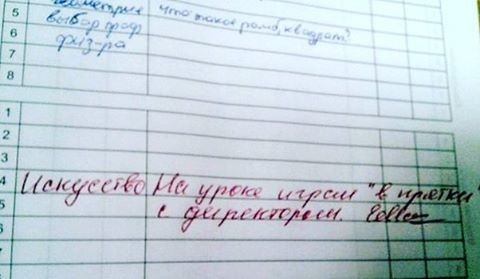 5 геометрия Что такое ромб, квадрат?
6 выбор проф
7 физ-ра
8
1
2
3
4 Искусство На уроке играл "в прятки"
5 с директором.
6
7
8